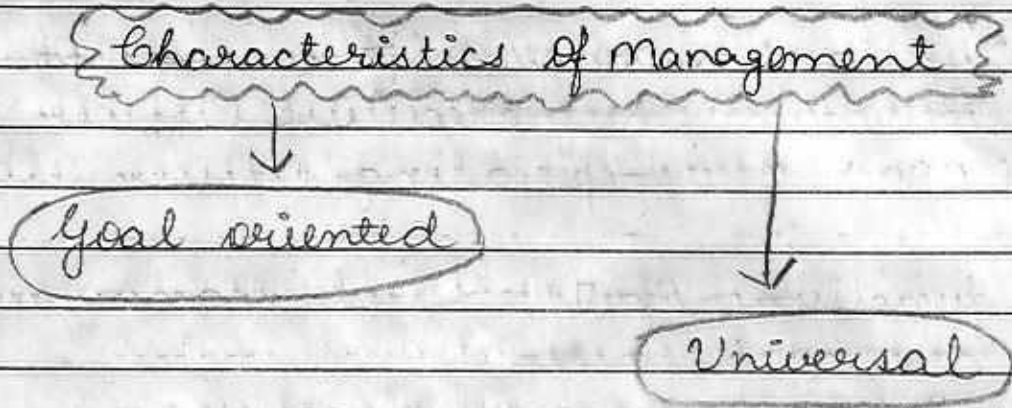 Characteristics of Management
Goal oriented
Universal